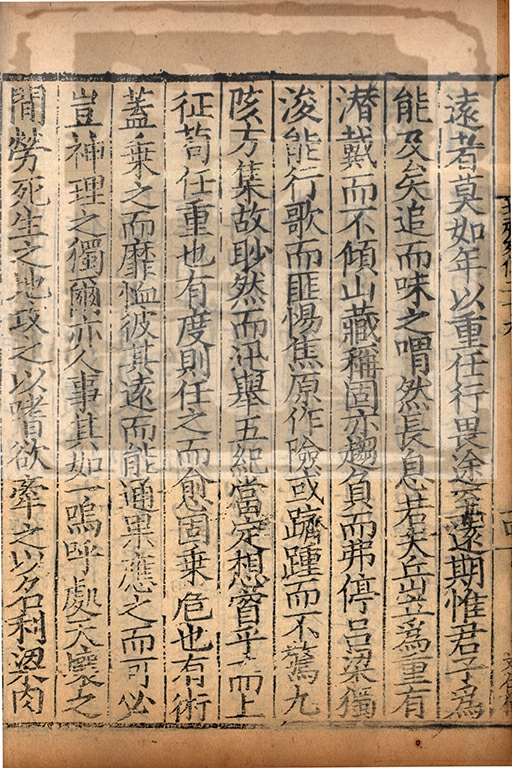 遠者莫如年以重任行畏途至遠期惟君子為
能及矣追而味之喟然長息若夫岳立為重有
潜戴而不傾山藏稱固亦趨負而弗停呂梁獨
浚能行歌而匪惕焦原作險或躋踵而不驚九
陔方集故眇然而迅舉五紀當定想窅乎而上
征苟任重也有度則任之而愈固乗危也有術
蓋乗之而靡恤彼其遠而能通果應之而可必
豈神理之獨爾亦人事其如一嗚呼處天壤之
間勞死生之地攻之以嗜欲牽之以名利梁肉